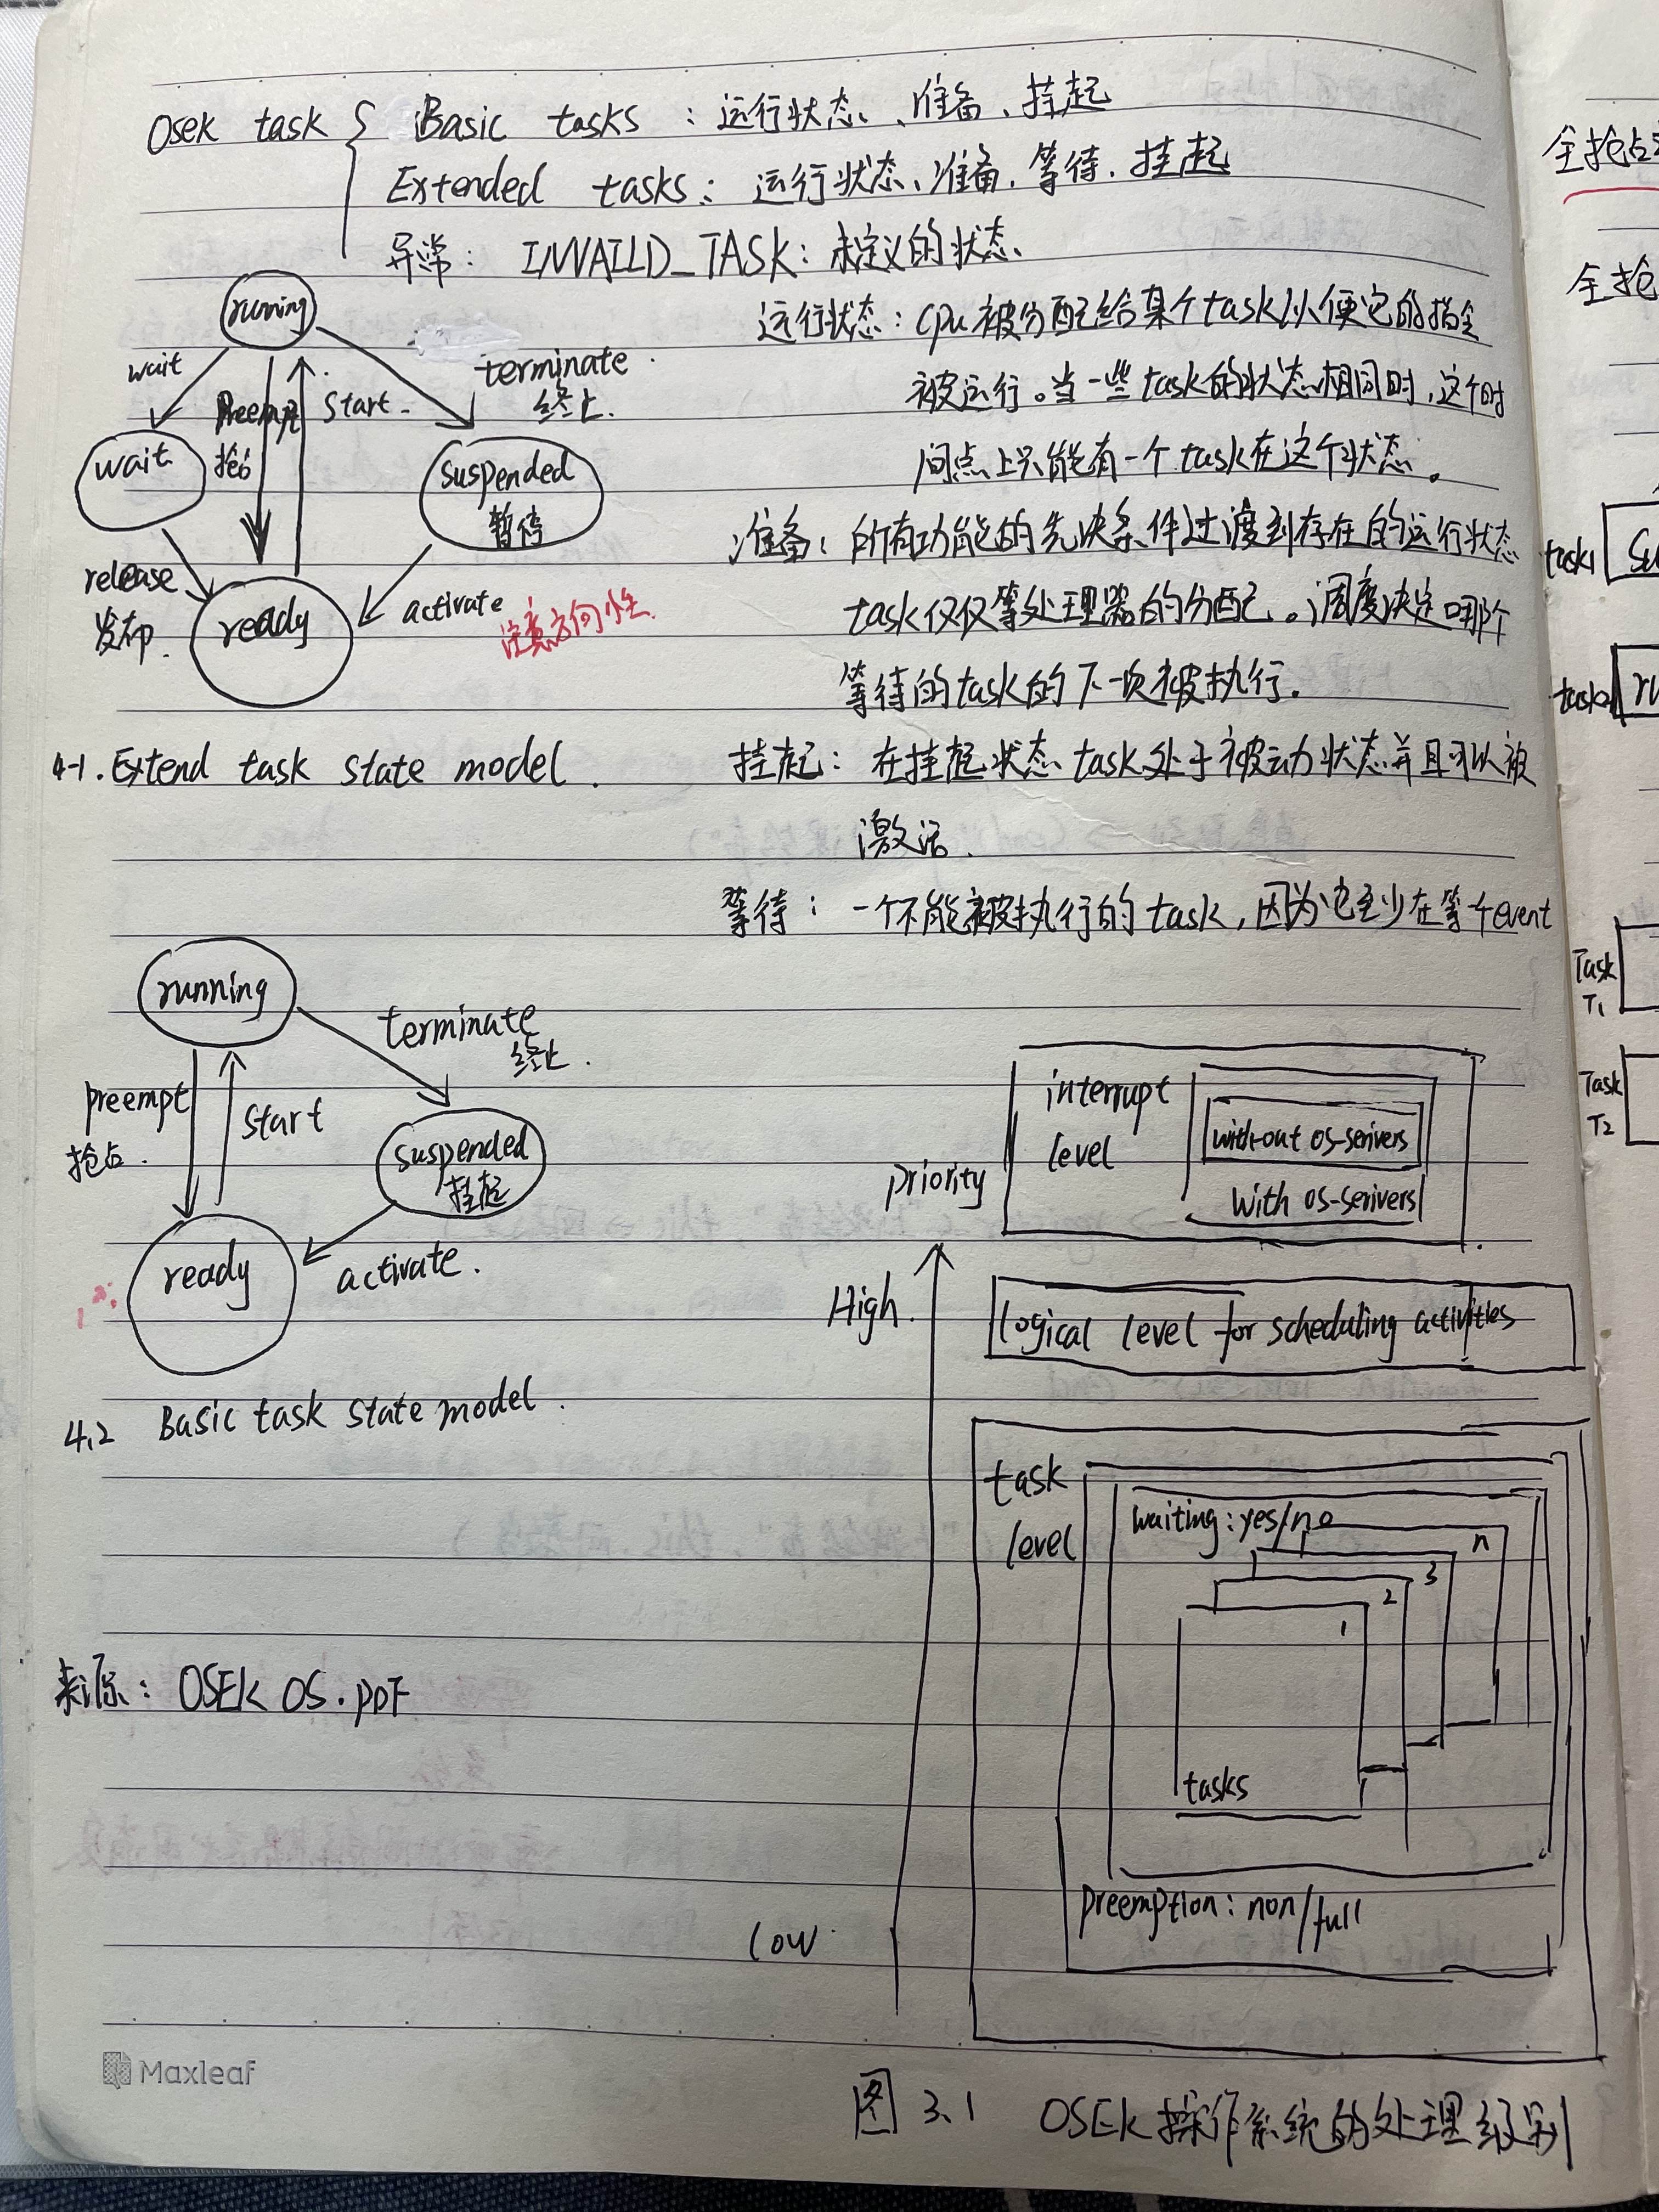 Osek task { Basic tasks : 运行状态、准备、挂起
Extended tasks : 运行状态、准备、等待、挂起
异常: INVAILD_TASK: 未定义的状态、
running
wait
Preempt
抢占
Start
terminate
终止.
wait
suspended
暂停
release
发布.
ready
activate
注意方向性.
4-1. Extend task state model.
运行状态: cpu被分配给某个task以便它的指令
被运行。当一些task的状态相同时,这个时
间点上只能有一个task在这个状态。
准备: 所有功能的先决条件过渡到存在的运行状态
task仅仅等处理器的分配。调度决定哪个
等待的task的下一次被执行.
挂起: 在挂起状态task处于被动状态并且可以被
激活.
等待: 一个不能被执行的task,因为它至少在等个event
running
preempt
抢占.
Start
terminate
终止.
suspended
挂起
ready
activate.
4.2 Basic task state model.
来源: OSEK OS.PDF
priority
High.
Low
interrupt
level
without os-serivers
with os-serivers
logical level for scheduling activities
task
level
waiting: yes/no
n
3
2
1
tasks
preemption: non/full
图 3.1 OSEK操作系统的处理级别
Maxleaf
全抢占
全抢
task1
task2
Task
T1
Task
T2